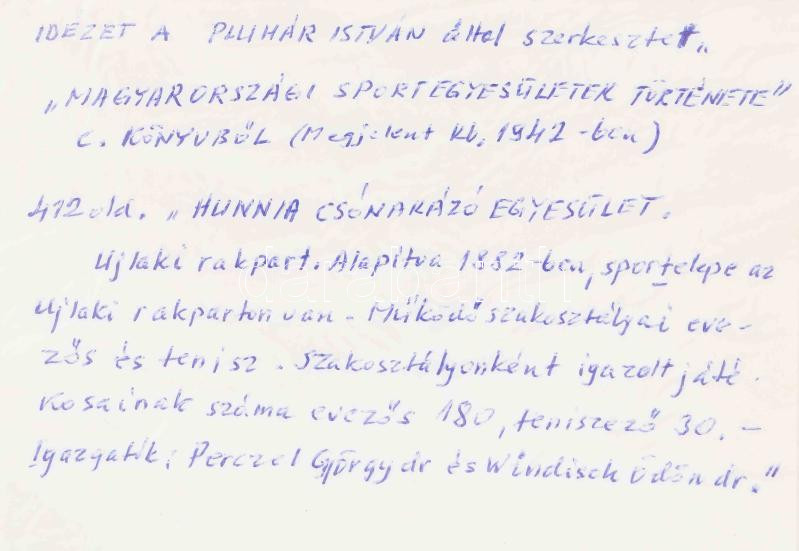 IDÉZET A PLUHÁR ISTVÁN által szerkesztet,,
„MAGYARORSZÁGI SPORTEGYESÜLETEK TÖRTÉNETE”
C. KÖNYVBŐL (Megjelent kb. 1942-ben)
412 old. „HUNNIA CSÓNAKÁZÓ EGYESÜLET.
Ujlaki rakpart. Alapítva 1882-ben, sportelepe az
Ujlaki rakparton van. Működő szakosztályai eve-
zős és tenisz. Szakosztályonként igazolt játé-
kosainak száma evezős 180, teniszező 30. –
Igazgatik: Perczel György dr és Windisch Ödön dr.”